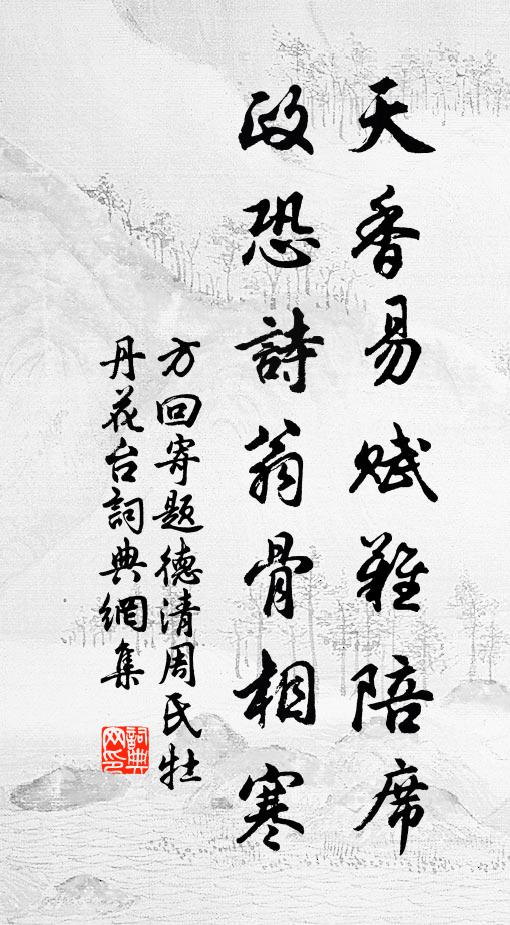 天香易赋難陪席
政恐詩翁骨相寒
方回寄题德清周氏牡
丹花台詞典網集
詞典网印